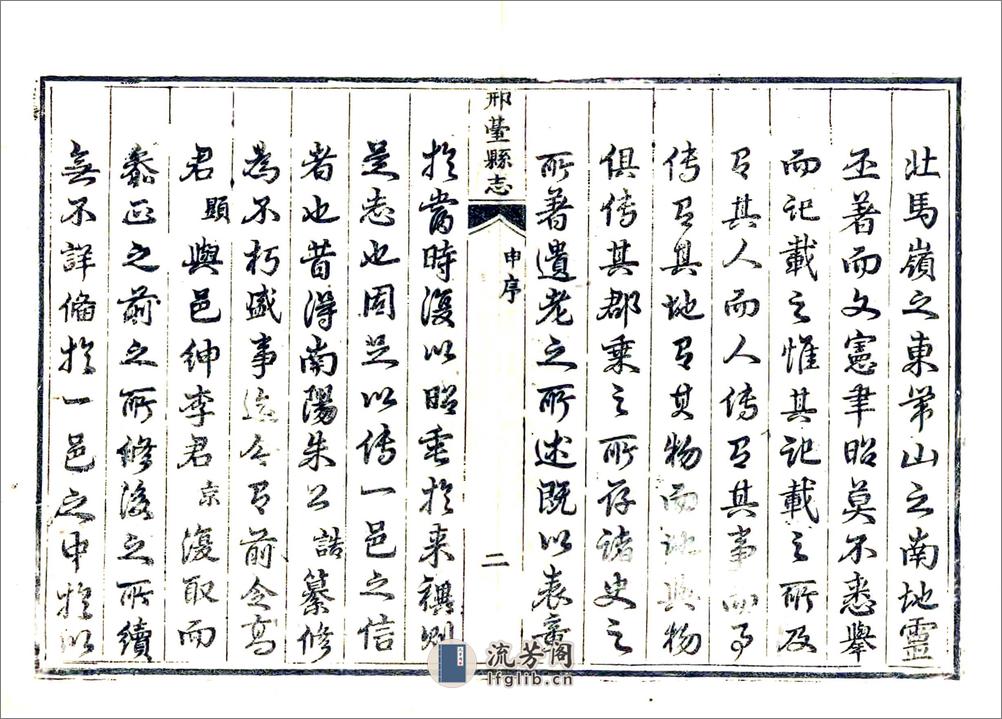 壯馬嶺之東第山之南地靈
丕著而文憲聿昭莫不悉舉
而記載之惟其記載之所及
有其人而人傳有其事而事
傳有其地有其物而地與物
俱傳其郡乘之所存諸史之
所著遺老之所述既以表章
邢臺縣志
申序
二
於當時復以昭垂於來禩則
是志也固足以傳一邑之信
者也昔得南陽朱公誥纂修
為不朽盛事迄今有前令高
君顯與邑紳李君京復取而
釐正之前之所修後之所續
無不詳備於一邑之中於以
流芳阁
lfglib.cn